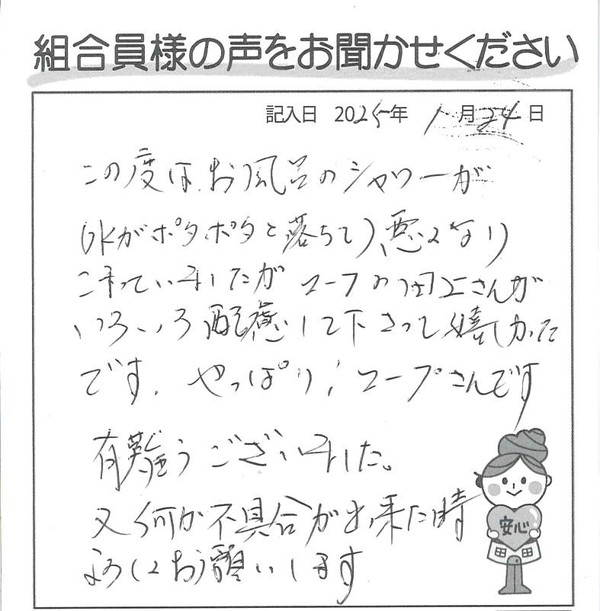 組合員様の声をお聞かせください
記入日 2025年 1月24日
この度は、お風呂のシャワーが
水がポタポタと落ちて、悪くなり
こまっていましたが コープの田上さんが
いろいろ配慮して下さって嬉しかった
です。やっぱり! コープさんです
有難うございました。
又何か不具合が出来た時
よろしくお願いします
安心